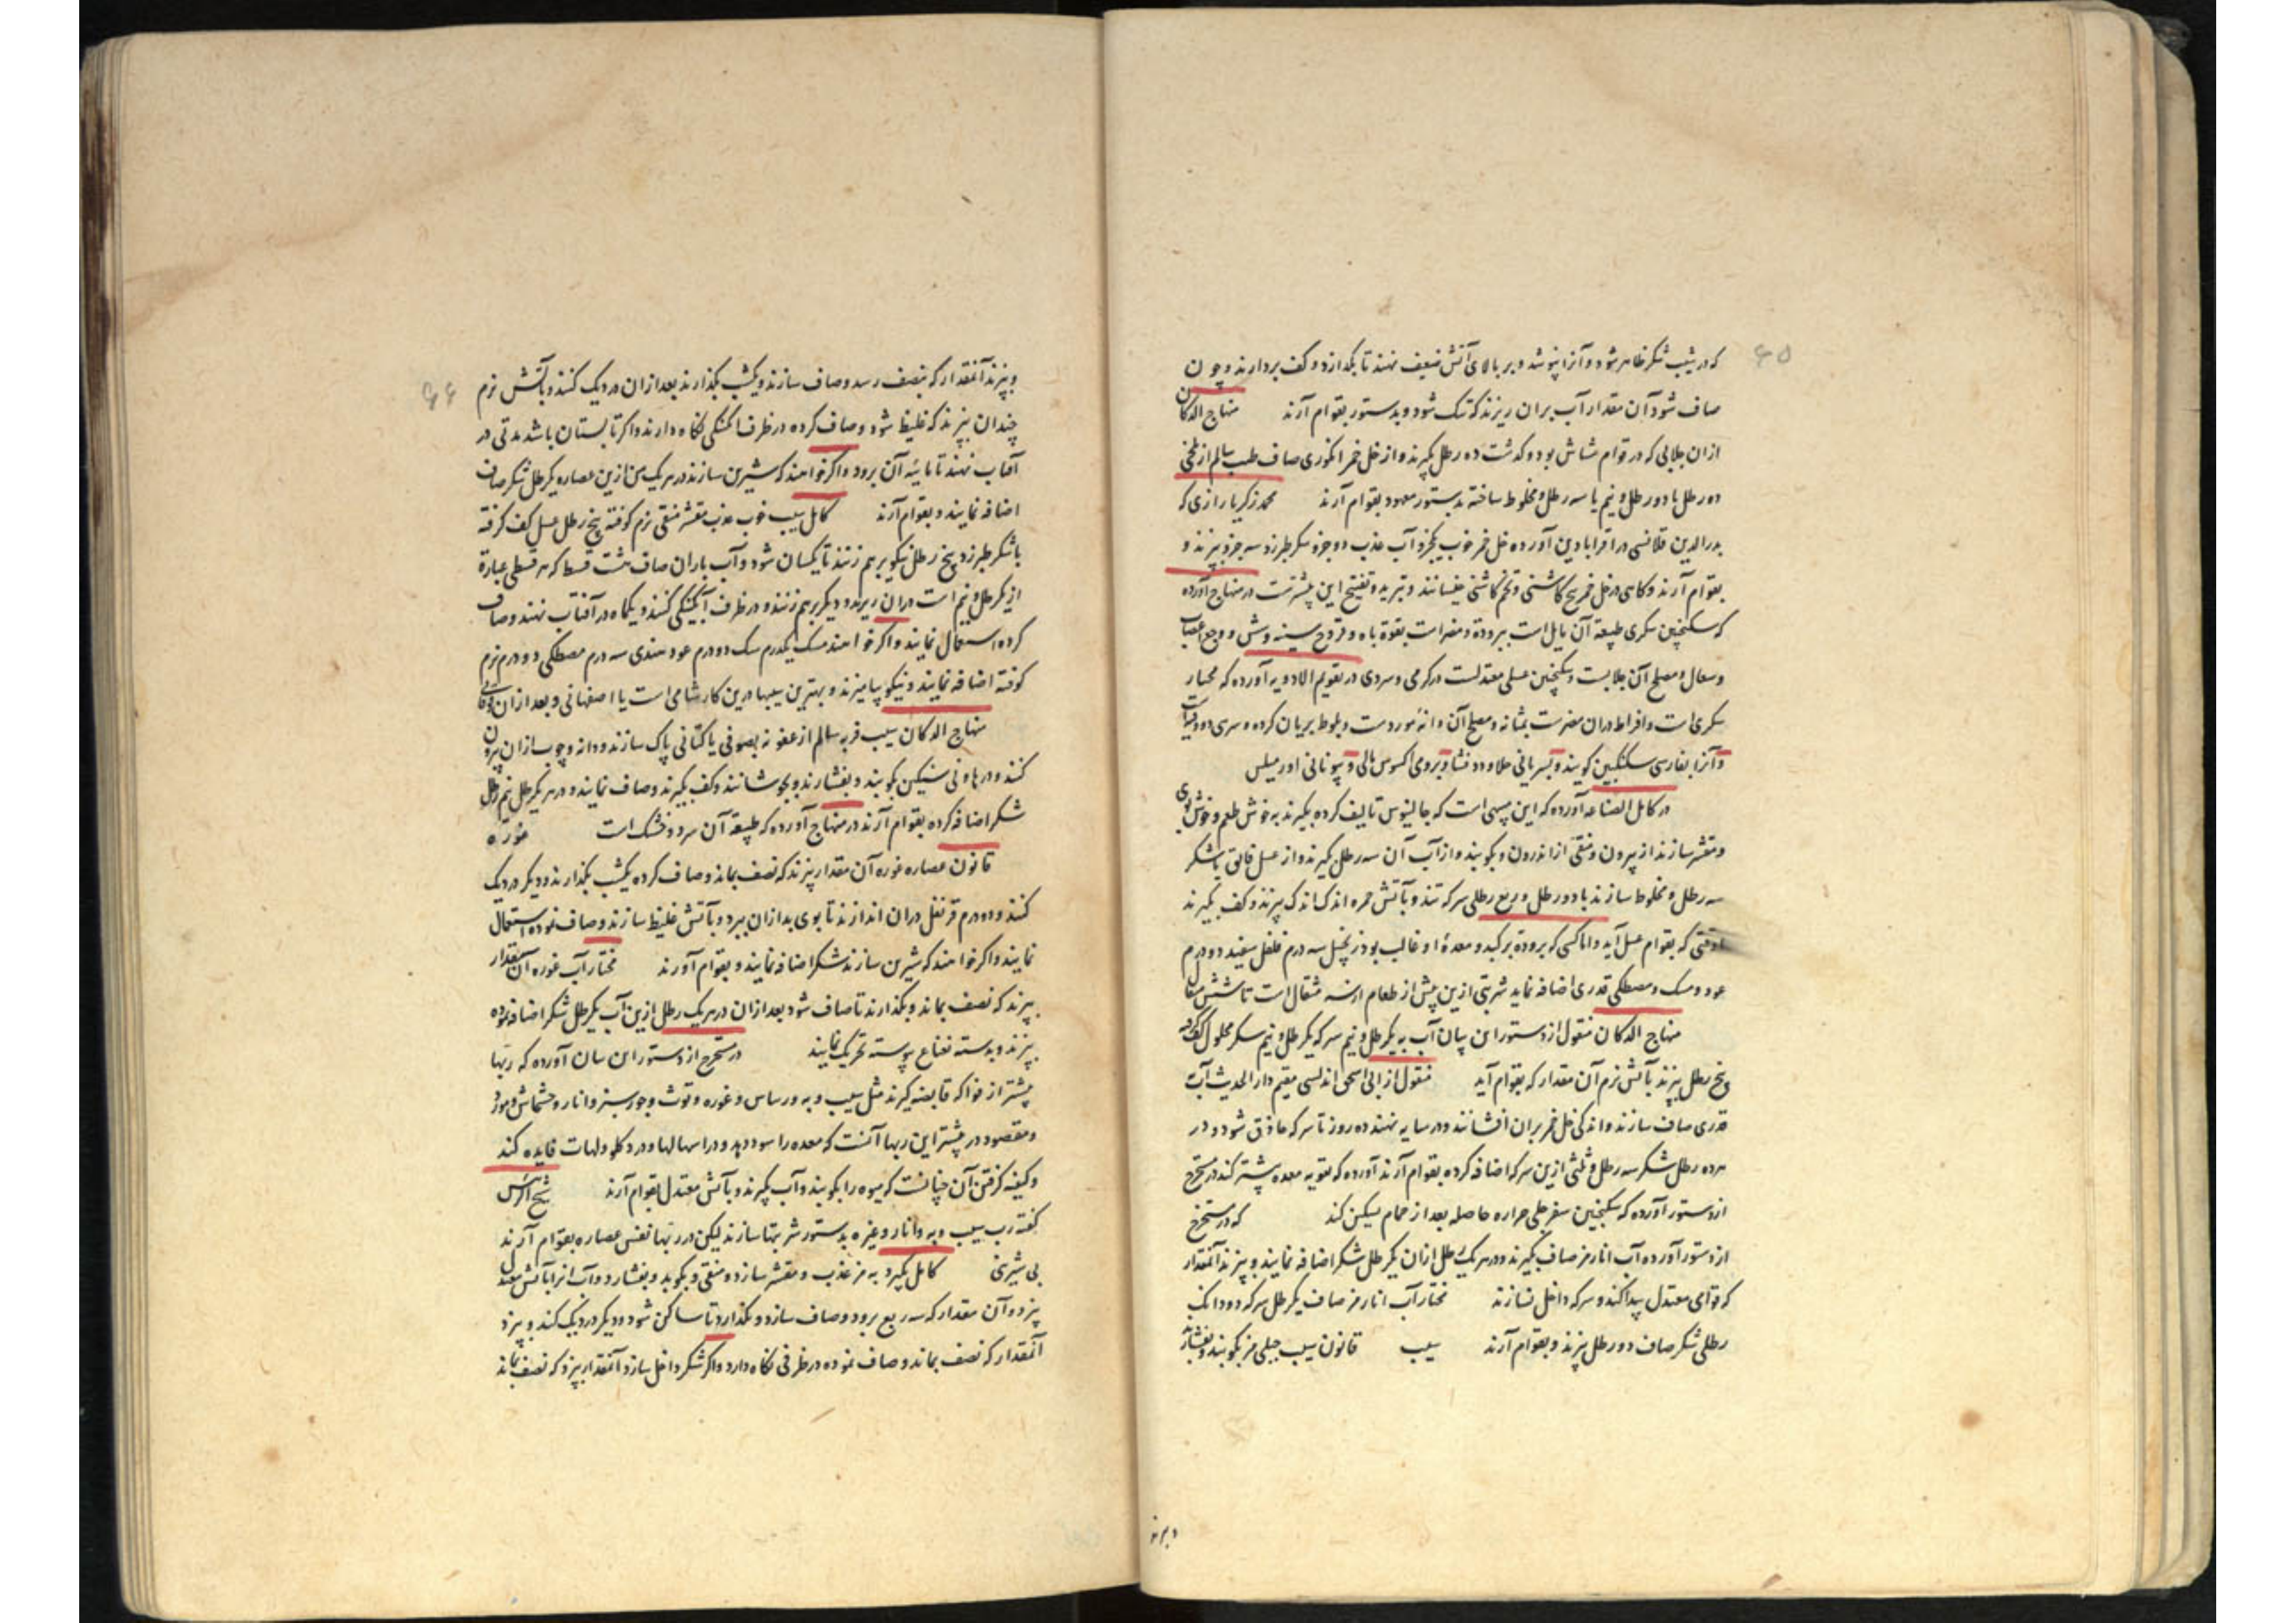 ۶۵
که در شیب شکر ظاهر شود و آنرا بپوشد و بر بالای آتش ضعیف نهند تا بگدازد و کف بردارند و چون
صاف شود آن مقدار آب بران ریزند که تنک شود و بدستور بقوام آرند منهاج الدکان
ازان جلابی که در قوام شاش بود و گذشت ده رطل بگیرند و از خل خمر انگوری صاف طیب سالم از تلخی
دو رطل یا دو رطل و نیم یا سه رطل و مخلوط ساخته بدستور معهود بقوام آرند محمد زکریا رازی که
بدرالدین قلانسی در اقرابادین آورده خل خمر خوب یکجزو آب عذب دو جزو سکر طبرزد سه جزو بپزند و
بقوام آرند و کاهی در خل خمر بیخ کاسنی و تخم کاسنی بخیسانند و تبرید و تفتیح این بیشترست در منهاج آورده
که سکنجبین سکری طبیعة آن مایل است ببرودة و مضر است بقوة باه و قروح سینه و شش و وجع اعصاب
و سعال و مصلح آن جلابست و سکنجبین عسلی معتدلست در گرمی و سردی در تقویم الادویه آورده که مختار
سکری است و افراط دران مضرست بمثانه و مصلح آن دانه مورد ست و بلوط بریان کرده و سری دو وقیات
و آنرا بفارسی سکنگبین گویند و بسریانی و برومی و بیونانی
در کامل الصناعه آورده که این میبهی است که جالینوس تالیف کرده بگیرند به خوش طعم و خوش بوی
و مقشر سازند از بیرون و منقی از اندرون و بکوبند و از آب آن سه رطل بگیرند و از عسل فایق یا شکر
سه رطل و مخلوط سازند با دو رطل و ربع رطلی سرکه تند و بآتش جمره اندک اندک بپزند و کف بگیرند
تا وقتی که بقوام عسل آید و اما کسی که برودة بر کبد و معدهٔ او غالب بود زنجبیل سه درم فلفل سفید دو درم
عود و مسک و مصطکی قدری اضافه نماید شربتی ازین پیش از طعام از سه مثقال است تا شش مثقال
منهاج الدکان منقول از دستور این بیان آب به یکرطل و نیم سرکه یکرطل و نیم سکر محلول کف کرده
پنج رطل بپزند بآتش نرم آن مقدار که بقوام آید منقول از ابی اسحق اندلسی مقیم دار الحدیث آب
قدری صاف سازند و اندکی خل خمر بران افشانند و در سایه نهند ده روز تا سرکه حاذق شود و در
هر ده رطل شکر سه رطل و ثلثی ازین سرکه اضافه کرده بقوام آرند آورده که تقویه معده بیشتر کند در مستخرج
از دستور آورده که سکنجبین سفرجلی حراره حاصله بعد از حمام تسکین کند که در مستخرج
از دستور آورده آب انار مز صاف بگیرند و در هر یک رطل ازان یکرطل شکر اضافه نمایند و بپزند آنمقدار
که قوامی معتدل پیدا کند و سرکه داخل نسازند مختار آب انار مز صاف یکرطل سرکه دو دانک
رطلی شکر صاف دو رطل بپزند و بقوام آرند سیب قانون سیب جبلی مز بکوبند و بفشارند
و بپزند
۶۶
و بپزند آنمقدار که بنصف رسد و صاف سازند و یکشب بگذارند بعد ازان در دیک کنند و بآتش نرم
چندان بپزند که غلیظ شود و صاف کرده در ظرف آبگینگی نگاه دارند و اگر تابستان باشد مدتی در
آفتاب نهند تا مائیه آن برود و اگر خواهند که شیرین سازند در هر یک من ازین عصاره یکرطل شکر صاف
اضافه نمایند و بقوام آرند کامل سیب خوب عذب مقشر منقی نرم کوفته پنج رطل عسل کف گرفته
با شکر طبرزد پنج رطل نیکو برهم زنند تا یکسان شود و آب باران صاف شت قسط که هر قسطی عبارة
از یکرطل و نیم است دران ریزند و دیگر برهم زنند و در ظرف آبگینگی کنند و یکماه در آفتاب نهند و صاف
کرده استعمال نمایند و اگر خواهند مسک یکدرم سک دو درم عود هندی سه درم مصطکی دو درم نرم
کوفته اضافه نمایند و نیکو بیامیزند و بهترین سیبها درین کار شامی است یا اصفهانی و بعد ازان
منهاج الدکان سیب فربه سالم از عفونه بصوفی یا کتانی پاک سازند و دانه و چوب ازان بیرون
کنند و در هاونی سنگین بکوبند و بفشارند و بجوشانند و کف بگیرند و صاف نمایند و در هر یکرطل نیم رطل
شکر اضافه کرده بقوام آرند در منهاج آورده که طبیعة آن سرد و خشک است غوره
قانون عصاره غوره آن مقدار بپزند که نصف بماند و صاف کرده یکشب بگذارند و دیگر در دیک
کنند و دو درم قرنفل دران اندازند تا بوی بد ازان ببرد و بآتش غلیظ سازند و صاف نموده استعمال
نمایند و اگر خواهند که شیرین سازند شکر اضافه نمایند و بقوام آورند مختار آب غوره آن مقدار
بپزند که نصف بماند و بگذارند تا صاف شود بعد ازان در هر یک رطل ازین آب یکرطل شکر اضافه نموده
بپزند و بدسته نعناع پیوسته تحریک نمایند در مستخرج از دستور این سان آورده که ربها
بیشتر از فواکه قابضه گیرند مثل سیب و به و ریباس و غوره و توث و جوز سبز و انار و خشخاش و مورد
و مقصود در بیشتر این ربها آنست که معده را سود دهد و در اسهالها و درد گلو و لهات فایده کند
و کیفیه گرفتن آن چنانست که میوه را بکوبند و آب بگیرند و بآتش معتدل بقوام آرند شیخ الرئیس
گفته رب سیب و به و انار و غیره بدستور شربتها سازند لیکن در ربها نفس عصاره بقوام آرند
بی شیرینی کامل بگیرد به مز عذب و مقشر سازد و منقی و بکوبد و بفشارد و آب انرا بآتش معتدل
بپزد و آن مقدار که سه ربع برود و صاف سازد و بگذارد تا ساکن شود و دیگر در دیک کند و بپزد
آنمقدار که نصف بماند و صاف نموده در ظرفی نگاه دارد و اگر شکر داخل سازد آنمقدار بپزد که نصف بماند